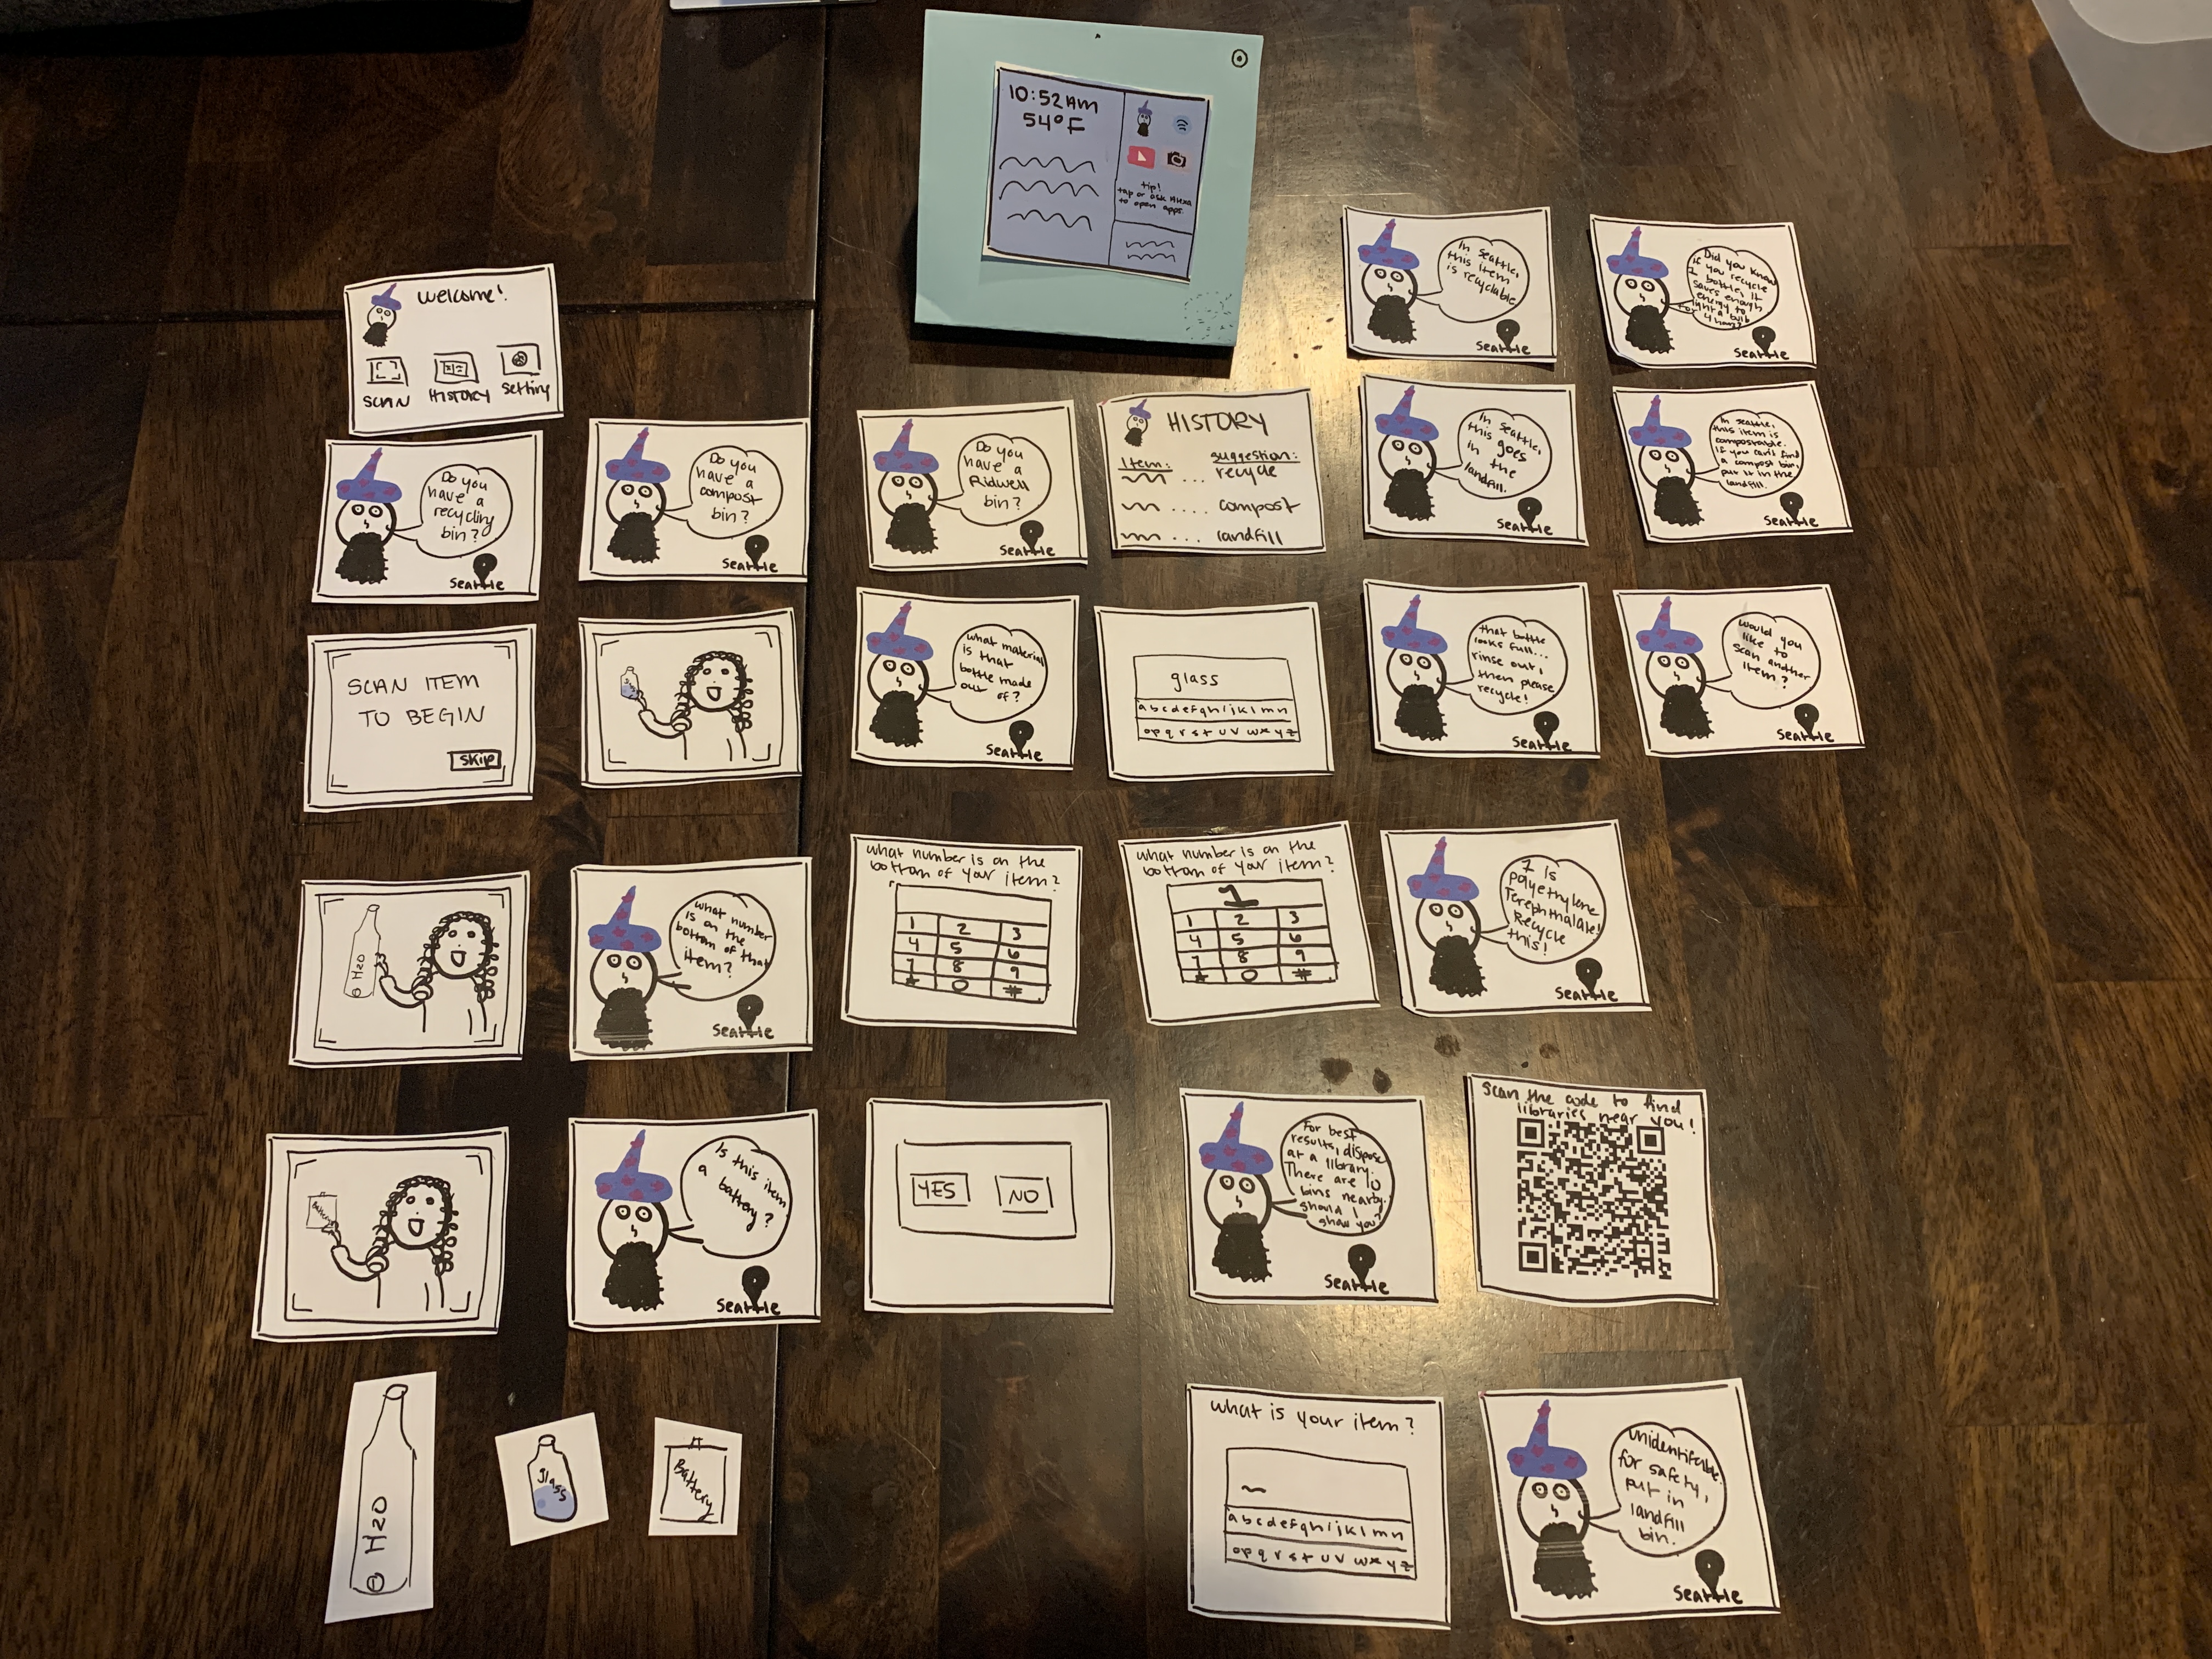 10:52AM
54°F
tip!
tap or ask Alexa
to open apps.
welcome!
SCAN
HISTORY
Setting
In Seattle,
this item
is recyclable
Seattle
Did you know
if you recycle
1 bottle, it
saves enough
energy to
light a bulb
for 4 hours?
Seattle
Do you
have a
recycling
bin?
Seattle
Do you
have a
compost
bin?
Seattle
Do you
have a
Ridwell
bin?
Seattle
HISTORY
Item:
suggestion:
... recycle
.... compost
... landfill
In Seattle,
this goes
in the
landfill.
Seattle
In Seattle,
this item is
compostable.
If you can't find
a compost bin,
put it in the
landfill.
Seattle
SCAN ITEM
TO BEGIN
Skip
what material
is that
bottle made
out of?
Seattle
glass
a b c d e f g h i j k l m n
o p q r s t u v w x y z
that bottle
looks full...
rinse out,
then please
recycle!
Seattle
would you
like to
scan another
item?
Seattle
H2O
what number
is on the
bottom of that
item?
Seattle
what number is on the
bottom of your item?
1 2 3
4 5 6
7 8 9
* 0 #
what number is on the
bottom of your item?
1
1 2 3
4 5 6
7 8 9
* 0 #
1 is
polyethylene
Terephthalate!
Recycle
this!
Seattle
Is this item
a
battery?
Seattle
YES
NO
For best
results, dispose
at a library.
There are 10
bins nearby.
should I
show you?
Seattle
Scan the code to find
libraries near you!
H2O
glass
Battery
what is your item?
a b c d e f g h i j k l m n
o p q r s t u v w x y z
unidentifiable.
for safety,
put in
landfill
bin.
Seattle